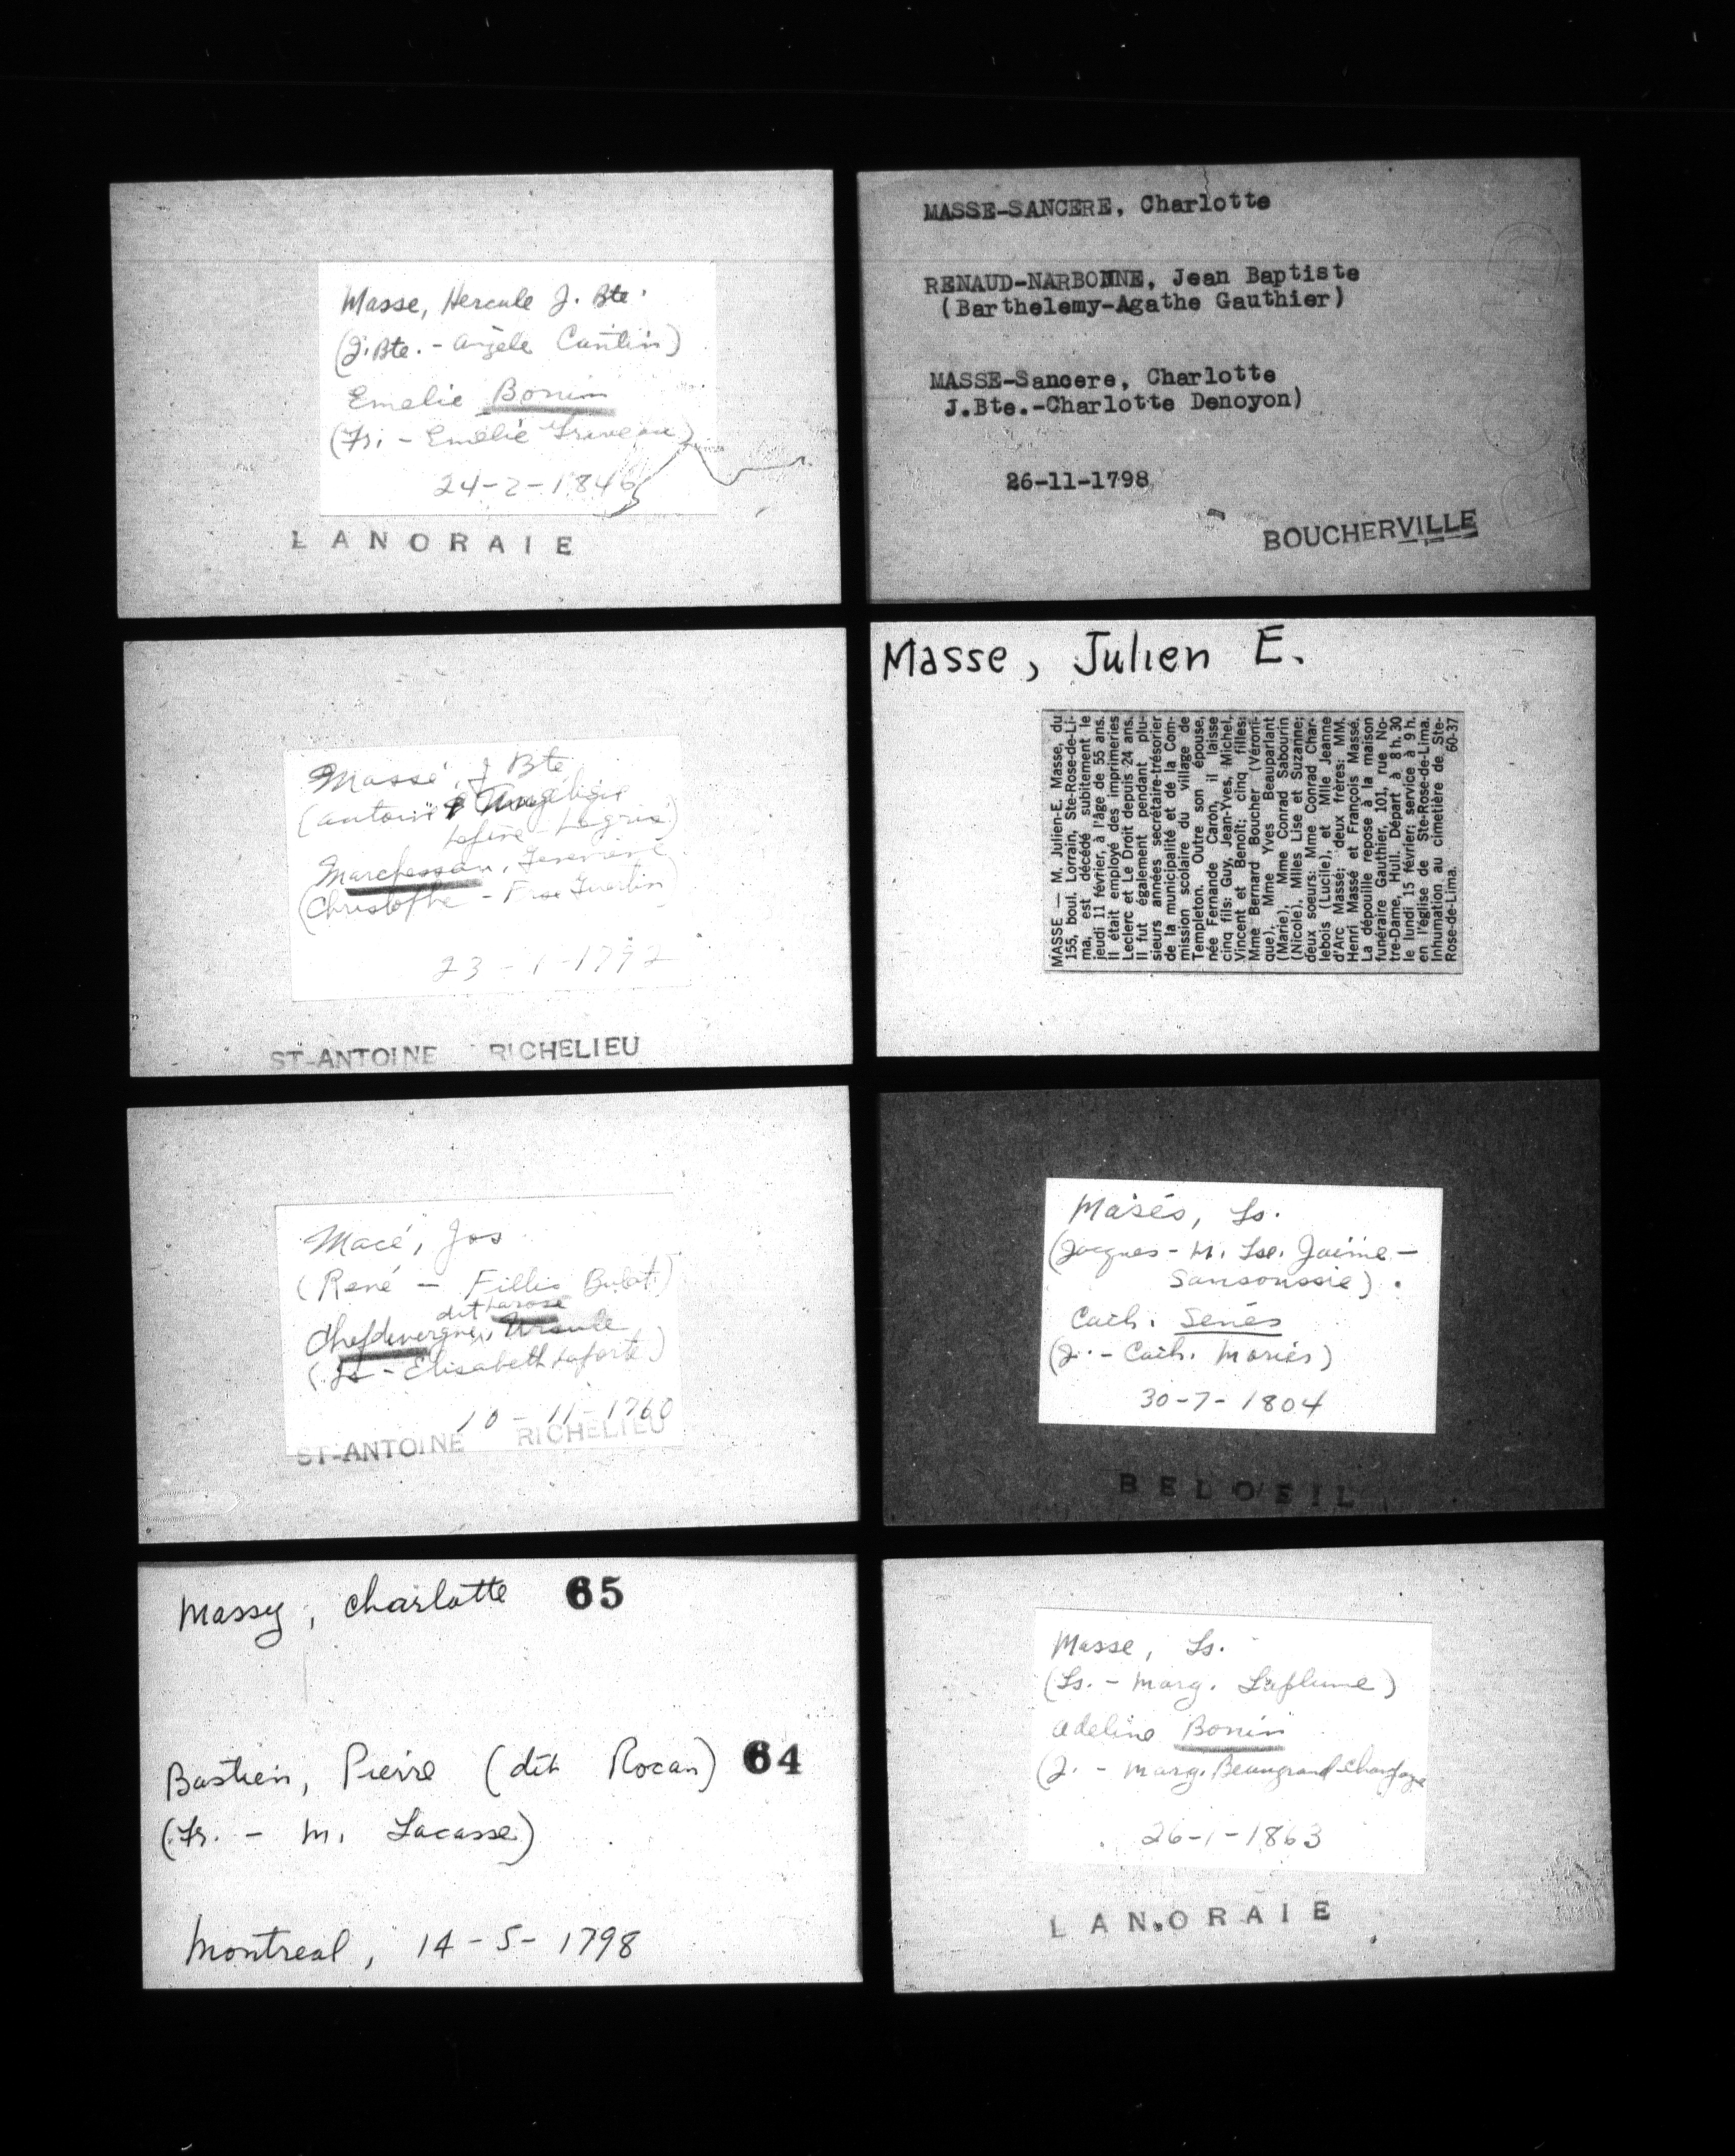 Masse, Hercule J. Bte.
(J. Bte. - Angèle Cantin)
Emelie Bonin
(Fr. - Emélie
24-2-1846
LANORAIE
MASSE-SANCERE, Charlotte
RENAUD-NARBONNE, Jean Baptiste
(Barthelemy-Agathe Gauthier)
MASSE-Sancere, Charlotte
J.Bte.-Charlotte Denoyon)
26-11-1798
BOUCHERVILLE
Massé, J Bte
(Antoine & Angélique
Marchessau, Genevieve
(Christophe - Fse Guertin)
23-1-1792
ST-ANTOINE RICHELIEU
Masse, Julien E.
MASSE — M. Julien-E. Masse, du
155, boul. Lorrain, Ste-Rose-de-Li-
ma, est décédé subitement le
jeudi 11 février, à l'âge de 55 ans.
Il était employé des imprimeries
Leclerc et Le Droit depuis 24 ans.
Il fut également pendant plu-
sieurs années secrétaire-trésorier
de la municipalité et de la Com-
mission scolaire du village de
Templeton. Outre son épouse,
née Fernande Caron, il laisse
cinq fils: Guy, Jean-Yves, Michel,
Vincent et Benoît; cinq filles:
Mme Bernard Boucher (Véroni-
que), Mme Yves Beauparlant
(Marie), Mme Conrad Sabourin
(Nicole), Mlles Lise et Suzanne;
deux soeurs: Mme Conrad Char-
lebois (Lucile), et Mlle Jeanne
d'Arc Massé; deux frères: MM.
Henri Massé et François Massé.
La dépouille repose à la maison
funéraire Gauthier, 101, rue No-
tre-Dame, Hull. Départ à 8 h. 30
le lundi 15 février; service à 9 h.
en l'église de Ste-Rose-de-Lima.
Inhumation au cimetière de Ste-
Rose-de-Lima. 60-37
Macé, Jos
(René - Fillis Bulot)
dit Larose
Chefdevergne, Ursule
(Ls - Elisabeth Laforte)
10-11-1760
ST-ANTOINE RICHELIEU
Masés, Ls.
(Jacques - M. Lse. Jaime -
Sansoussie).
Cath. Senés
(J. - Cath. Moriés)
30-7-1804
BELOEIL
Massy, Charlotte 65
Bastien, Pierre (dit Rocan) 64
(Fr. - M. Lacasse)
Montreal, 14-5-1798
Masse, Ls.
(Ls. - Marg. Laplume)
Adeline Bonin
(J. - Marg. Beaugrand-Champagne
26-1-1863
LANORAIE